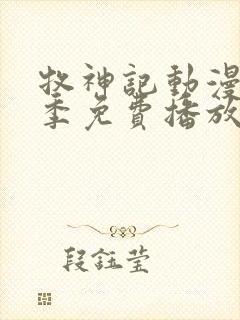 牧神記動漫
季免費播放
段鈺莹